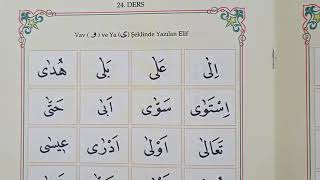 24. DERS
Vav ( و ) ve Ya (ى) Şeklinde Yazılan Elif
اِلٰى عَلٰى بَلٰى هُدٰى
اِسْتَوٰى سَوّٰى اَبٰى حَتّٰى
تَعَالٰى اَوْلٰى اَدْرٰى عٖيسٰى